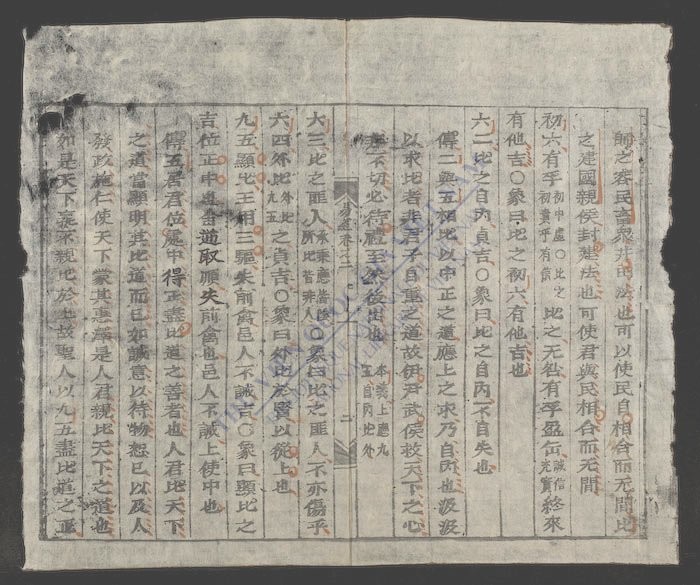 師之容民畜衆井田法也可以使民自相合而无間比
之建國親侯封建法也可使君與民相合而无間
初六有孚初中虛〇比之初貴乎有信比之无咎有孚盈缶誠信充實終來
有他吉〇象曰比之初六有他吉也
六二比之自內貞吉〇象曰比之自內不自失也
傳二與五相比以中正之道應上之求乃自內也汲汲
以求比者非君子自重之道故伊尹武侯救天下之心
非不切必待禮至然後出也本義上應九五自內比外
六三比之匪人承乘應皆陰所比皆非人〇象曰比之匪人不亦傷乎
易經卷之二
二
六四外比外比九五之貞吉〇象曰外比於賢以從上也
九五顯比王用三驅失前禽邑人不誡吉〇象曰顯比之
吉位正中也舍逆取順失前禽也邑人不誡上使中也
傳五居君位處中得正盡比道之善者也人君比天下
之道當顯明其比道而已如誠意以待物恕己以及人
發政施仁使天下蒙其惠澤是人君親比天下之道也
如是天下孰不親比於上故聖人以九五盡比道之正